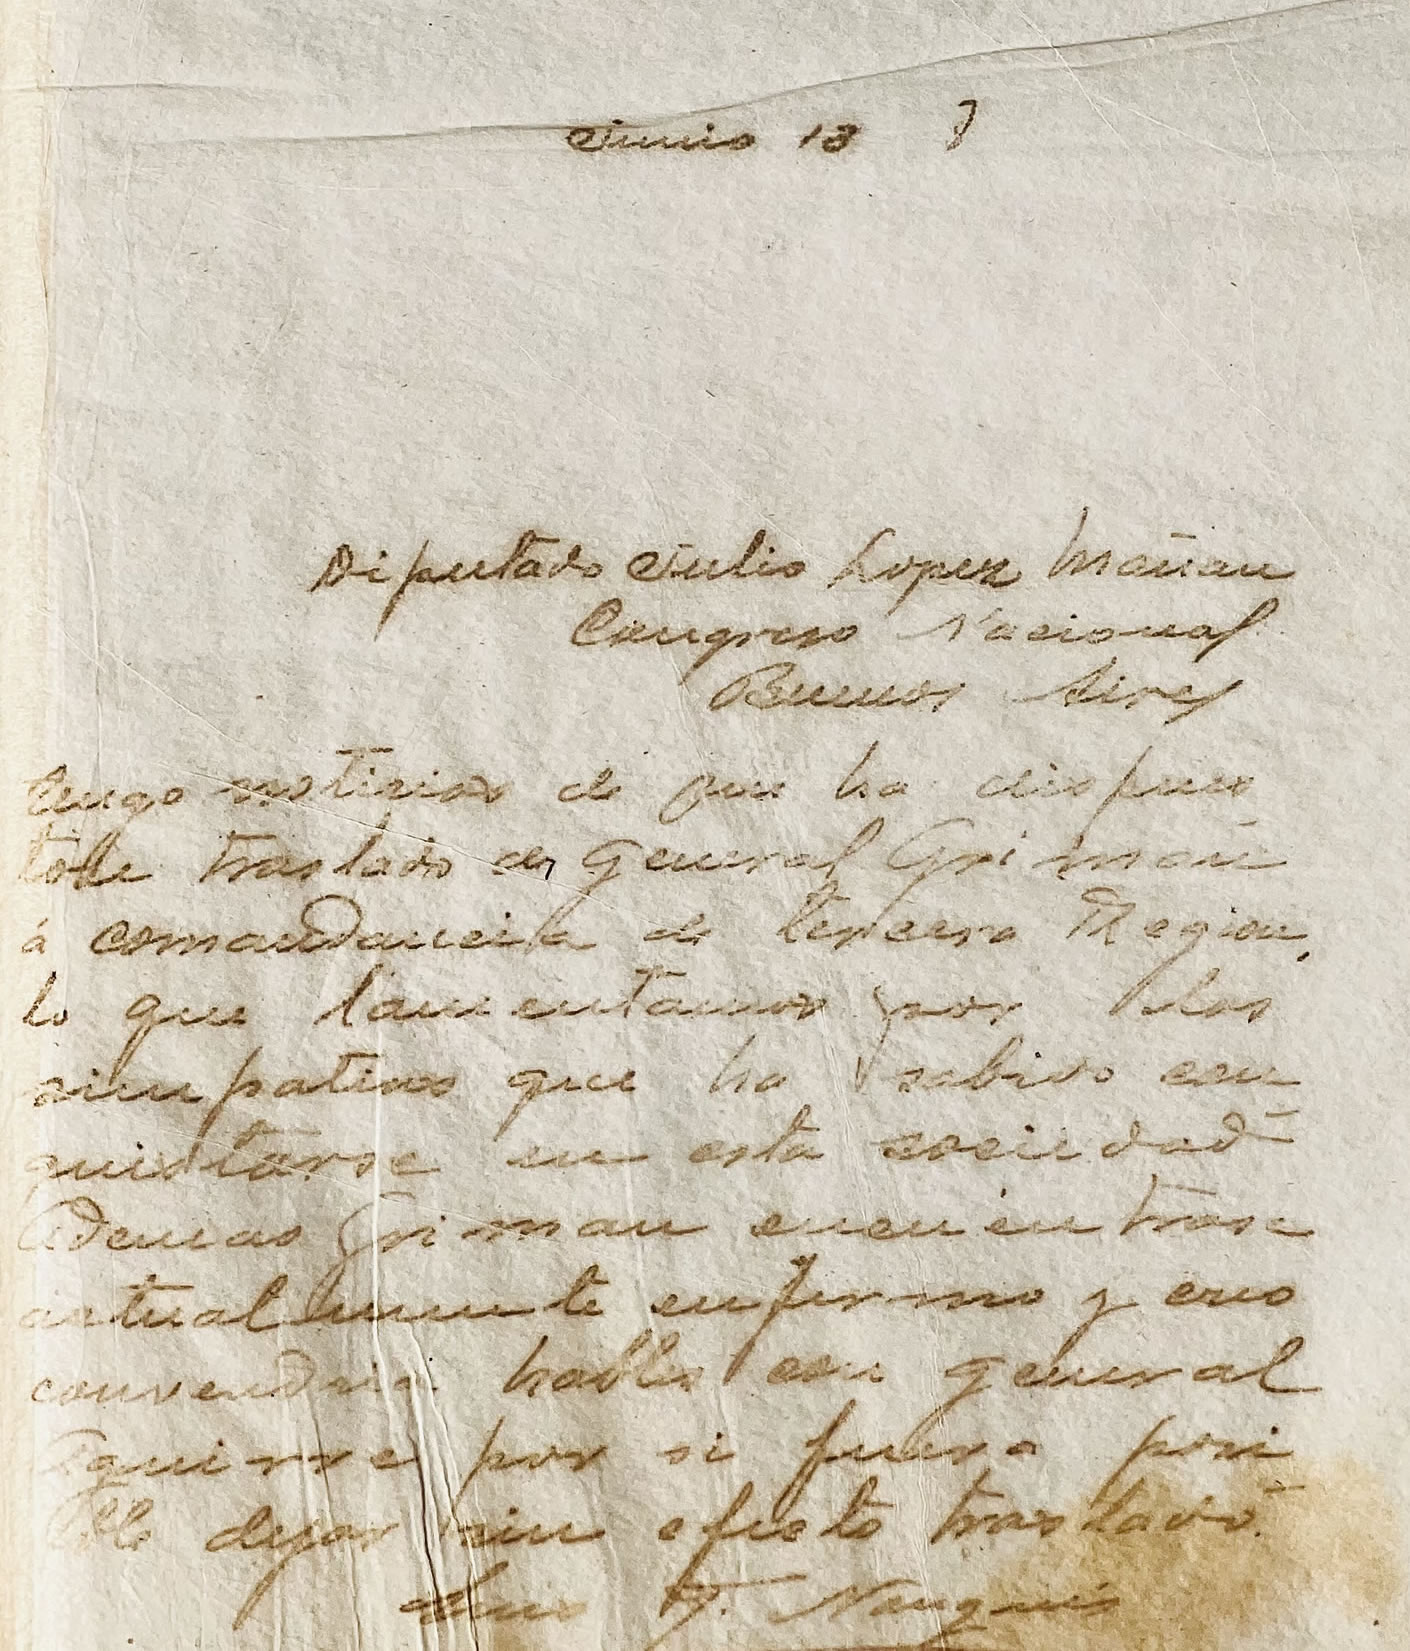 Junio 13
Diputado Julio Lopez Mañan
Congreso Nacional
Buenos Aires
tengo noticias de que ha dispues
tose traslado de General Griman
á comandancia de tercera Region,
lo que lamentamos por las
simpatias que ha sabido con
quistarse en esta sociedad
Ademas Griman encuentrase
actualmente enfermo y creo
convendria hable con general
Aguirre por si fuera posi
ble dejar sin efecto traslado.
Luis F. Nougués